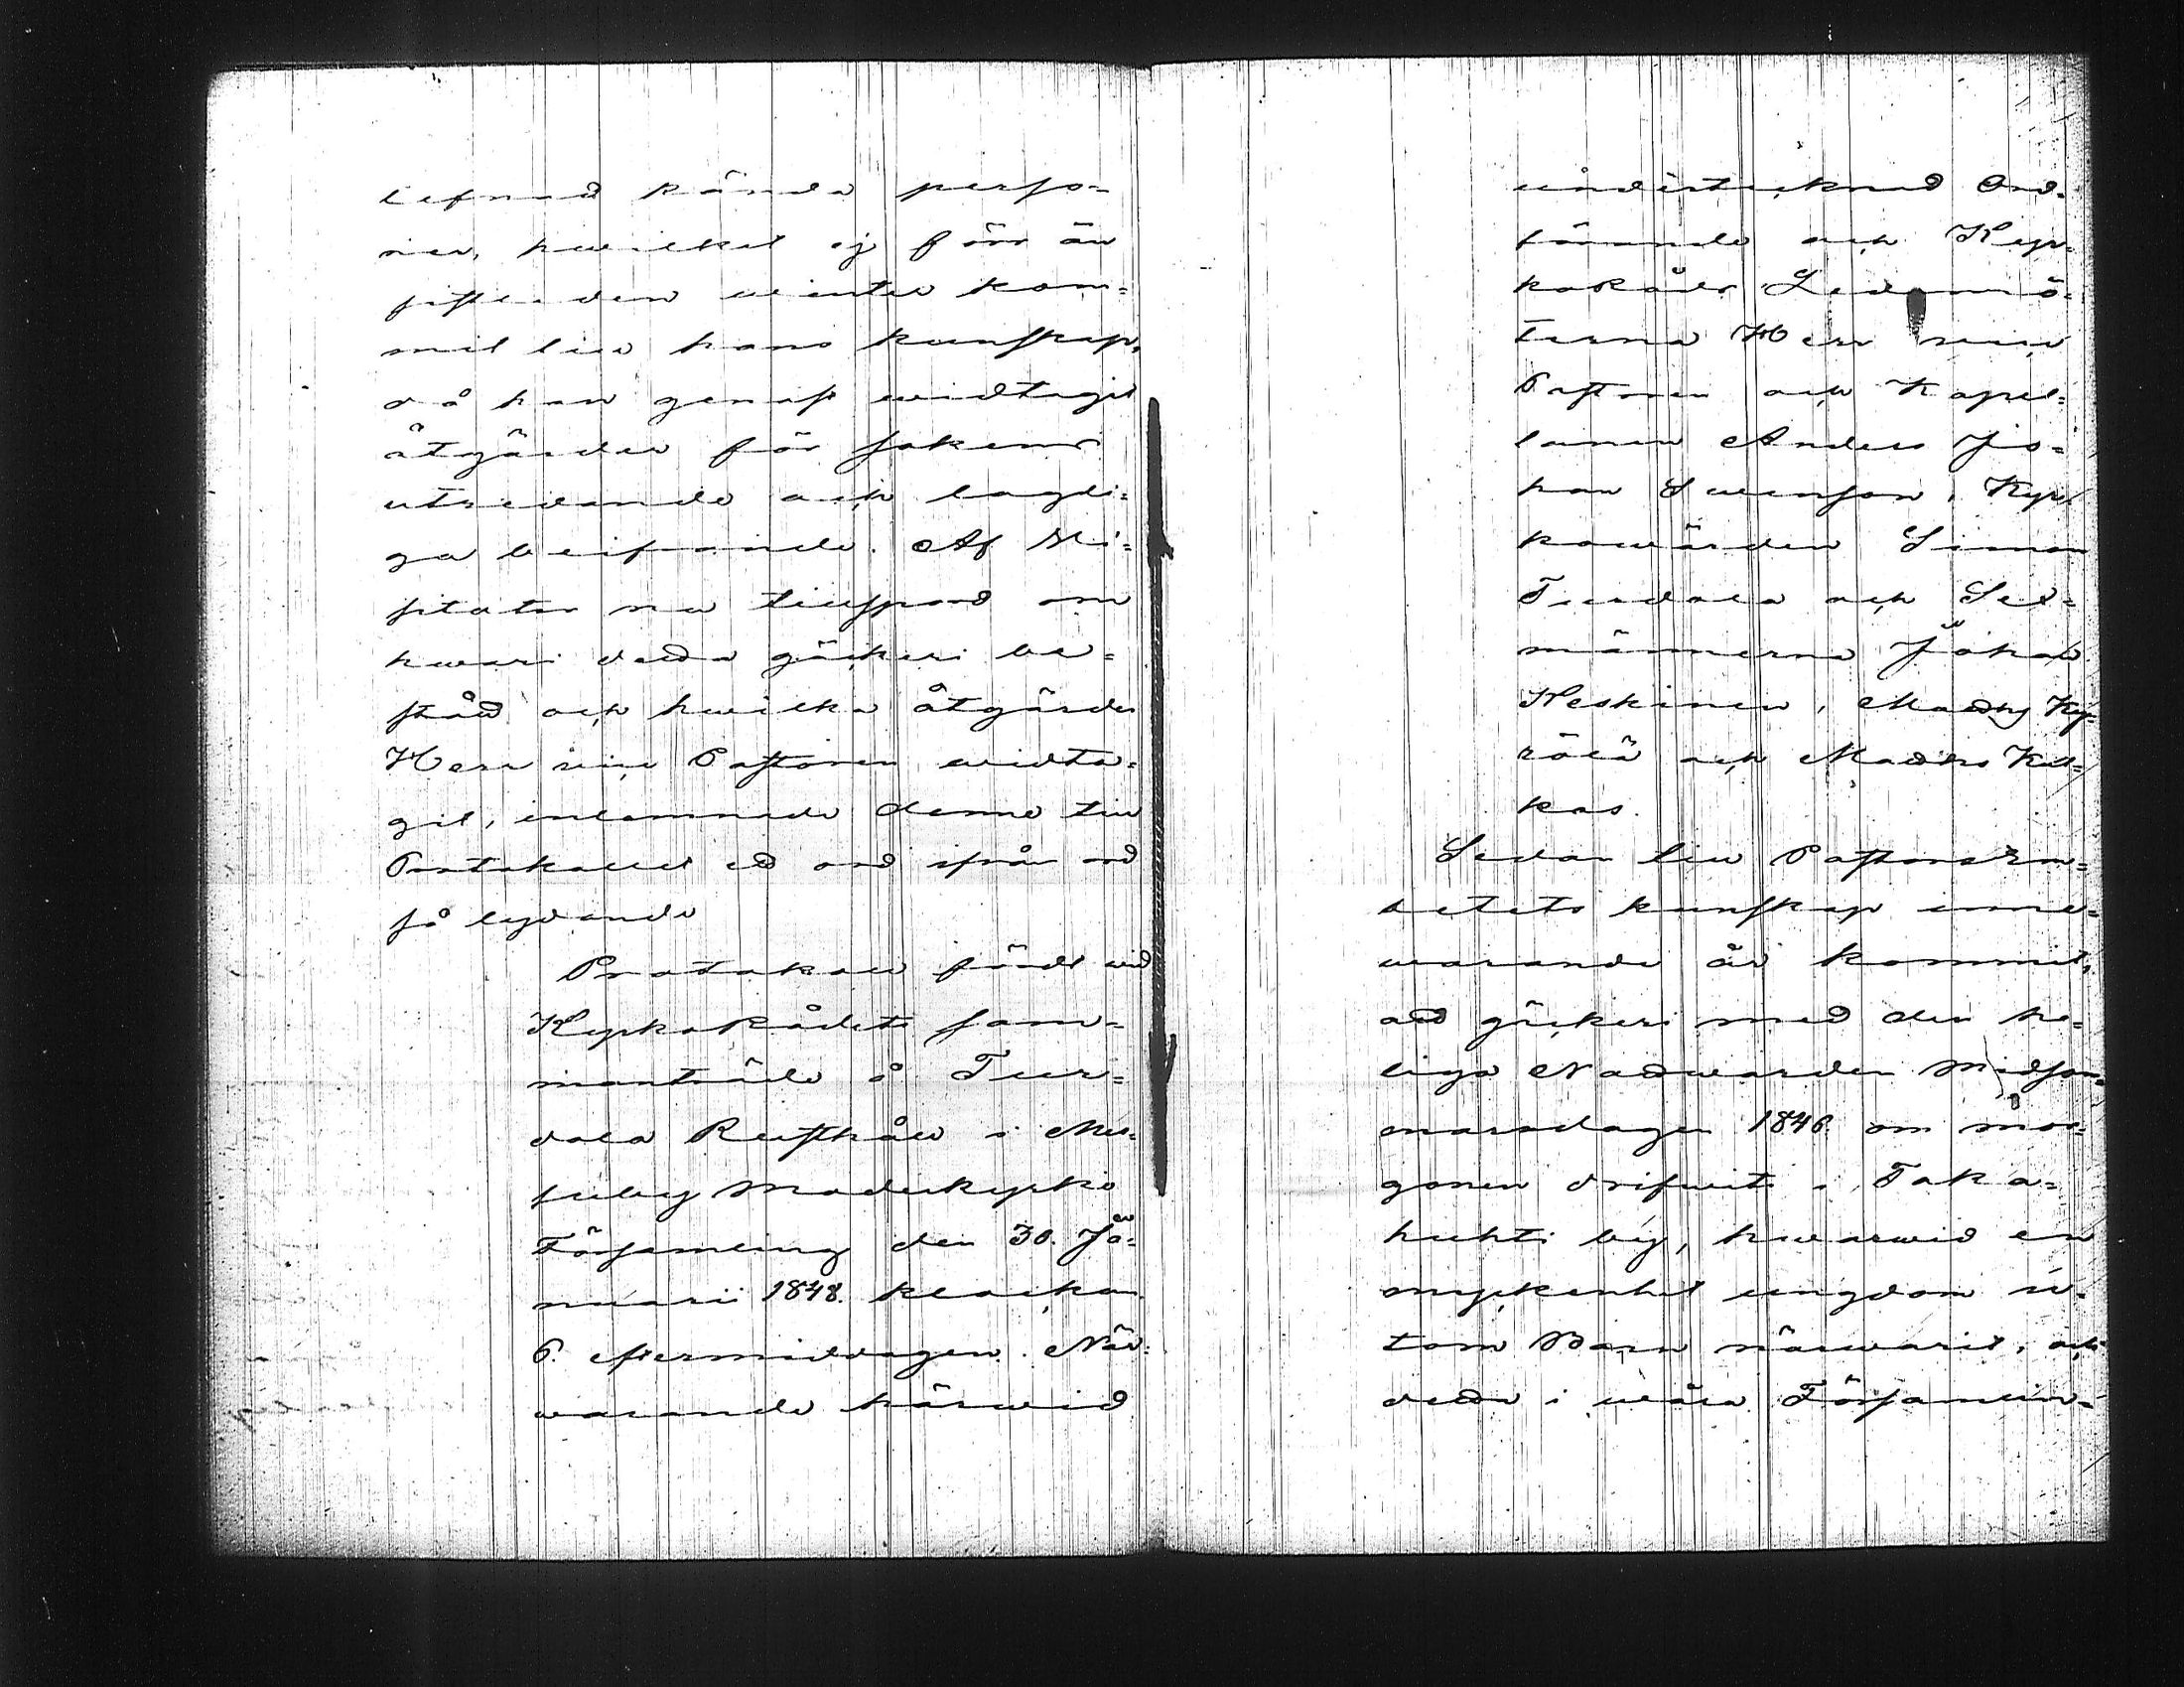 lefnad kända perso=
ner, hwilket ej förr än
sistleden winter kom=
mit till hans kunskap,
då han genast widtagit
åtgärder för sakens
utredande och lagli=
ga beifrande. Af Wi=
sitator nu tillspord om
hwari detta gäckeri be=
stått och hwilka åtgärder
Herr vice Pastoren widta=
git, inlemnade denne till
Protokollet ett ord ifrån ord
så lydande
Protokoll fördt wid
KyrkoRådets sam=
manträde å Tur=
dala Rusthåll i Mes=
suby Moderkyrko
Församling den 30. Ja=
nuarii 1848. klockan
6. eftermiddagen. När=
warande härwid
undertecknad Ord=
förande och Kyr=
koRåds Ledamö=
terna Herr vice
Pastoren och Kapel=
lanen Anders Jo=
han Swenson, Kyr=
kowärden Simon
Turdala och Sex=
männerna Johan
Keskinen, Matts Ky=
rölä och Matts Kal=
kas.
Sedan till PastorsEm=
betets kunskap inne=
warande år kommit,
att gäckeri med den he=
liga Nattwarden Midsom=
marsdagen 1846. om mor=
gonen drifwits i Taka=
huhti by, hwarwid en
myckenhet ungdom u=
tom Barn närwarit, och
detta i wåra Församlin=